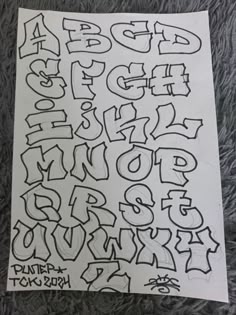 ABCD
EFGH
IJKL
MNOP
QRST
UVWXY
Z
TCK 2024